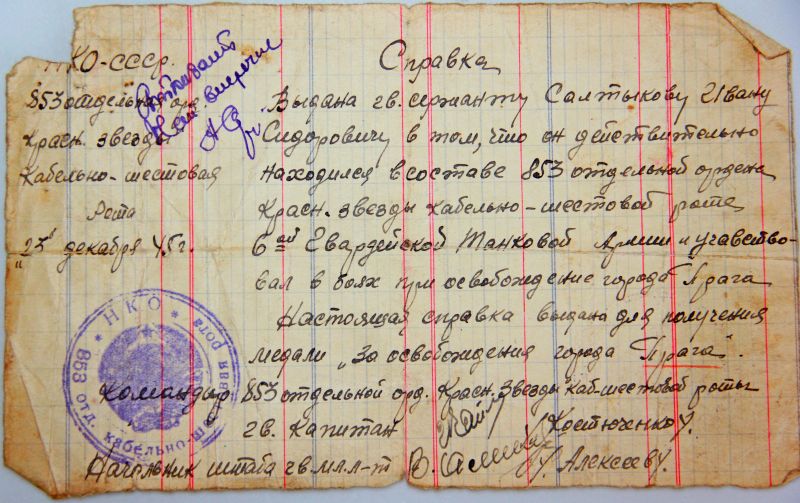 НКО-СССР.
853 отдельная орд.
Красн. звезды
Кабельно-шестовая
Рота
"25" декабря 45 г.
Справка
Выдана гв. сержанту Салтыкову Ивану
Сидоровичу в том, что он действительно
находился в составе 853 отдельной ордена
Красн. звезды кабельно-шестовой роте
6ой Гвардейской Танковой Армии и учавство-
вал в боях при освобождение города Прага
Настоящая справка выдана для получения
медали „За освобождения города Прага".
Командир 853 отдельной орд. Красн. Звезды каб-шестовой роты
гв. капитан /Костюченко/.
Начальник штаба гв. мл. л-т /Алексеев/.
* НКО *
853 отд. кабельно-
рота